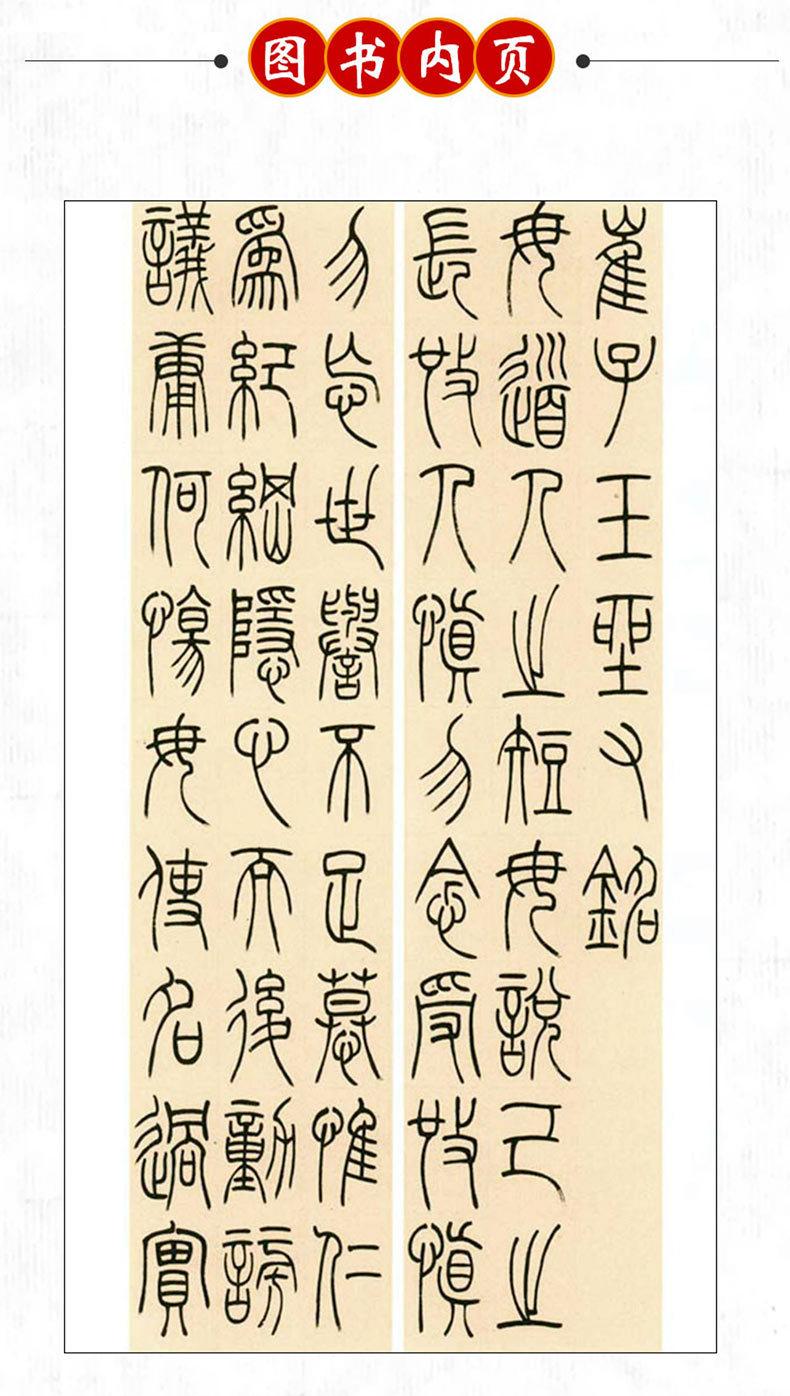 图书内页
崔子玉坐又銘
毋道人之短毋說己之
長施人慎勿念受施慎
勿忘世譽不足慕惟仁
爲紀綱隱心而後動謗
議庸何慯毋使名過實